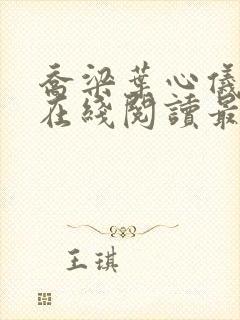 乔梁葉心儀
在綫閱讀最
王琪